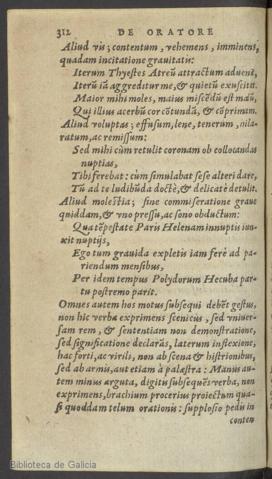 312 DE ORATORE
Aliud vis; contentum, vehemens, imminens,
quadam incitatione grauitatis:
Iterum Thyestes Atreũ attractum aduenit,
Iterũ iã aggreditur me, & quietũ exuscitat.
Maior mihi moles, maius miscẽdũ est malũ,
Qui illius acerbũ cor cõtundã, & cõprimam.
Aliud voluptas; effusum, lene, tenerum, hila-
ratum, ac remissum:
Sed mihi cùm retulit coronam ob collocandas
nuptias,
Tibi ferebat: cùm simulabat sese alteri dare,
Tũ ad te ludibũda doctè, & delicatè detulit.
Aliud molestia; sine commiseratione graue
quiddam, & vno pressu, ac sono obductum:
Qua tẽpestate Paris Helenam innuptis iun-
xit nuptijs,
Ego tum grauida expletis iam ferè ad pa-
riendum mensibus,
Per idem tempus Polydorum Hecuba par-
tu postremo parit.
Omnes autem hos motus subsequi debẽt gestus,
non hic verba exprimens scenicus, sed vniuer-
sam rem, & sententiam non demonstratione,
sed significatione declarãs, laterum inflexione,
hac forti, ac virili, non ab scena & histrionibus,
sed ab armis, aut etiam à palæstra: Manus au-
tem minus arguta, digitis subsequẽs verba, non
exprimens, brachium procerius proiectum qua-
si quoddam telum orationis: supplosio pedis in
conten
Biblioteca de Galicia